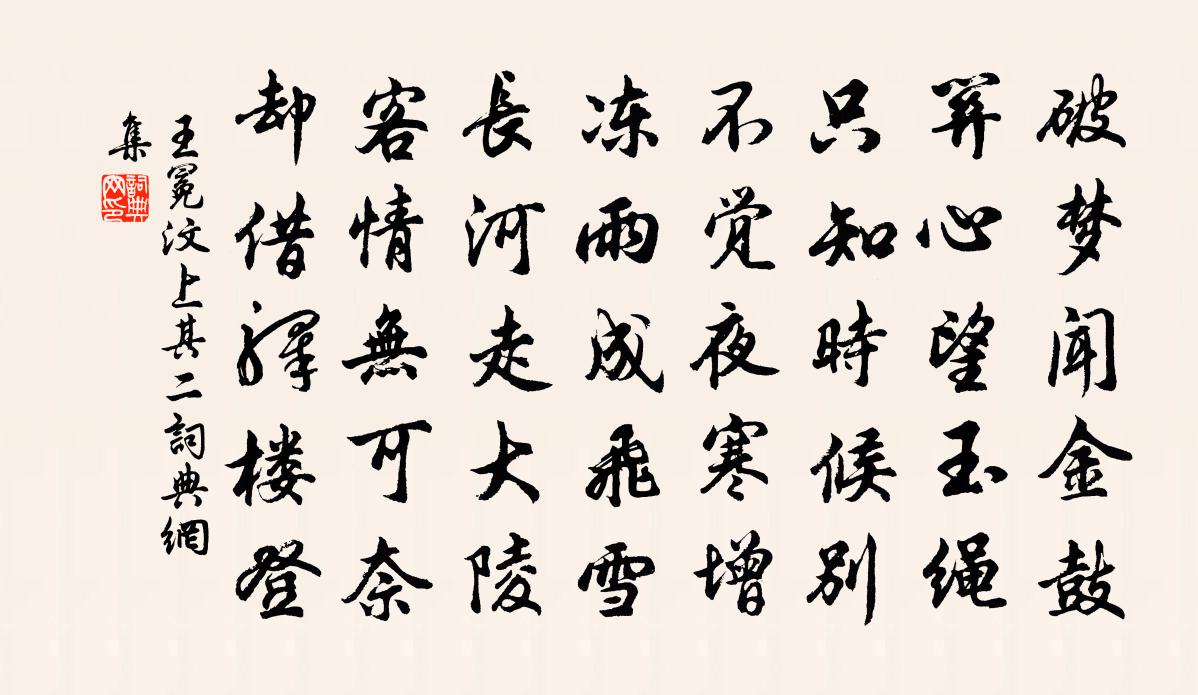 破梦闻金鼓
羿心望玉绳
只知時候别
不觉夜寒增
冻雨成飛雪
長河走大陵
客情無可奈
却借驛楼登
王冕汶上其二詞典網
集
詞典
网印